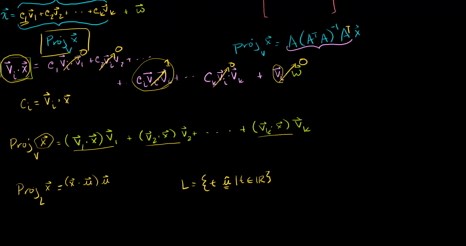 x⃗ = c₁v⃗₁ + c₂v⃗₂ + ··· + cₖv⃗ₖ + w⃗
Proj_V x⃗
proj_V x⃗ = A(AᵀA)⁻¹Aᵀx⃗
v⃗ᵢ · x⃗ = c₁v⃗ᵢ·v⃗₁ + c₂v⃗ᵢ·v⃗₂ + ···
+ cᵢv⃗ᵢ·v⃗ᵢ + ··· cₖv⃗ᵢ·v⃗ₖ + v⃗ᵢ·w⃗
cᵢ = v⃗ᵢ · x⃗
Proj_V (x⃗) = (v⃗₁·x⃗)v⃗₁ + (v⃗₂·x⃗)v⃗₂ + ···· + (v⃗ₖ·x⃗)v⃗ₖ
Proj_L x⃗ = (x⃗·u⃗)u⃗ L = {t u⃗ | t ∈ ℝ}